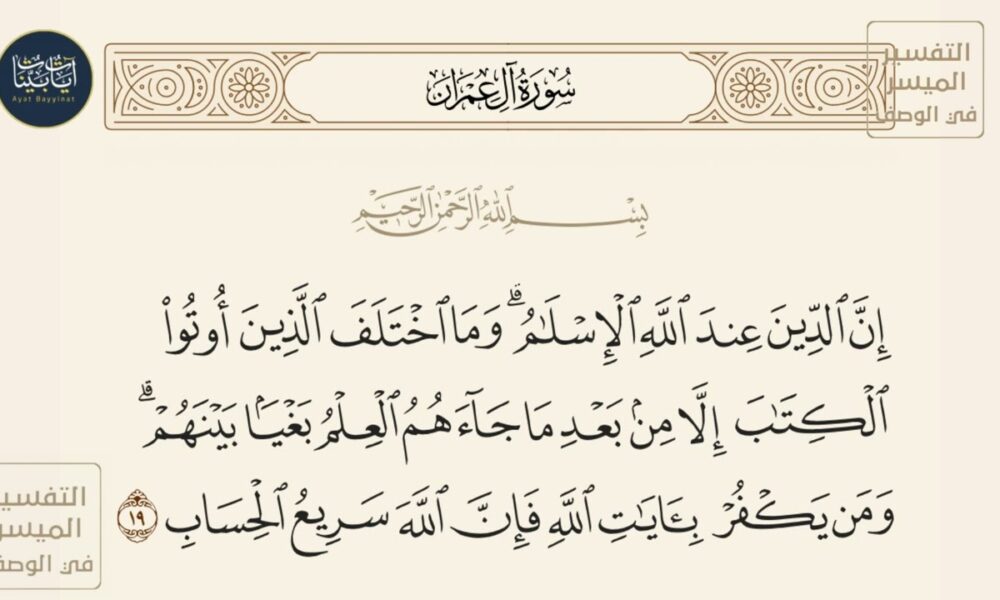 آيات بينات
Ayat Bayyinat
سُورَةُ آلِ عِمْرَان
التفسير
الميسر
في الوصف
بِسْمِ ٱللَّهِ ٱلرَّحْمَٰنِ ٱلرَّحِيمِ
إِنَّ ٱلدِّينَ عِندَ ٱللَّهِ ٱلْإِسْلَٰمُ ۗ وَمَا ٱخْتَلَفَ ٱلَّذِينَ أُوتُوا۟
ٱلْكِتَٰبَ إِلَّا مِنۢ بَعْدِ مَا جَآءَهُمُ ٱلْعِلْمُ بَغْيًۢا بَيْنَهُمْ ۗ
وَمَن يَكْفُرْ بِـَٔايَٰتِ ٱللَّهِ فَإِنَّ ٱللَّهَ سَرِيعُ ٱلْحِسَابِ ١٩
التفسير
الميسر
في الوصف